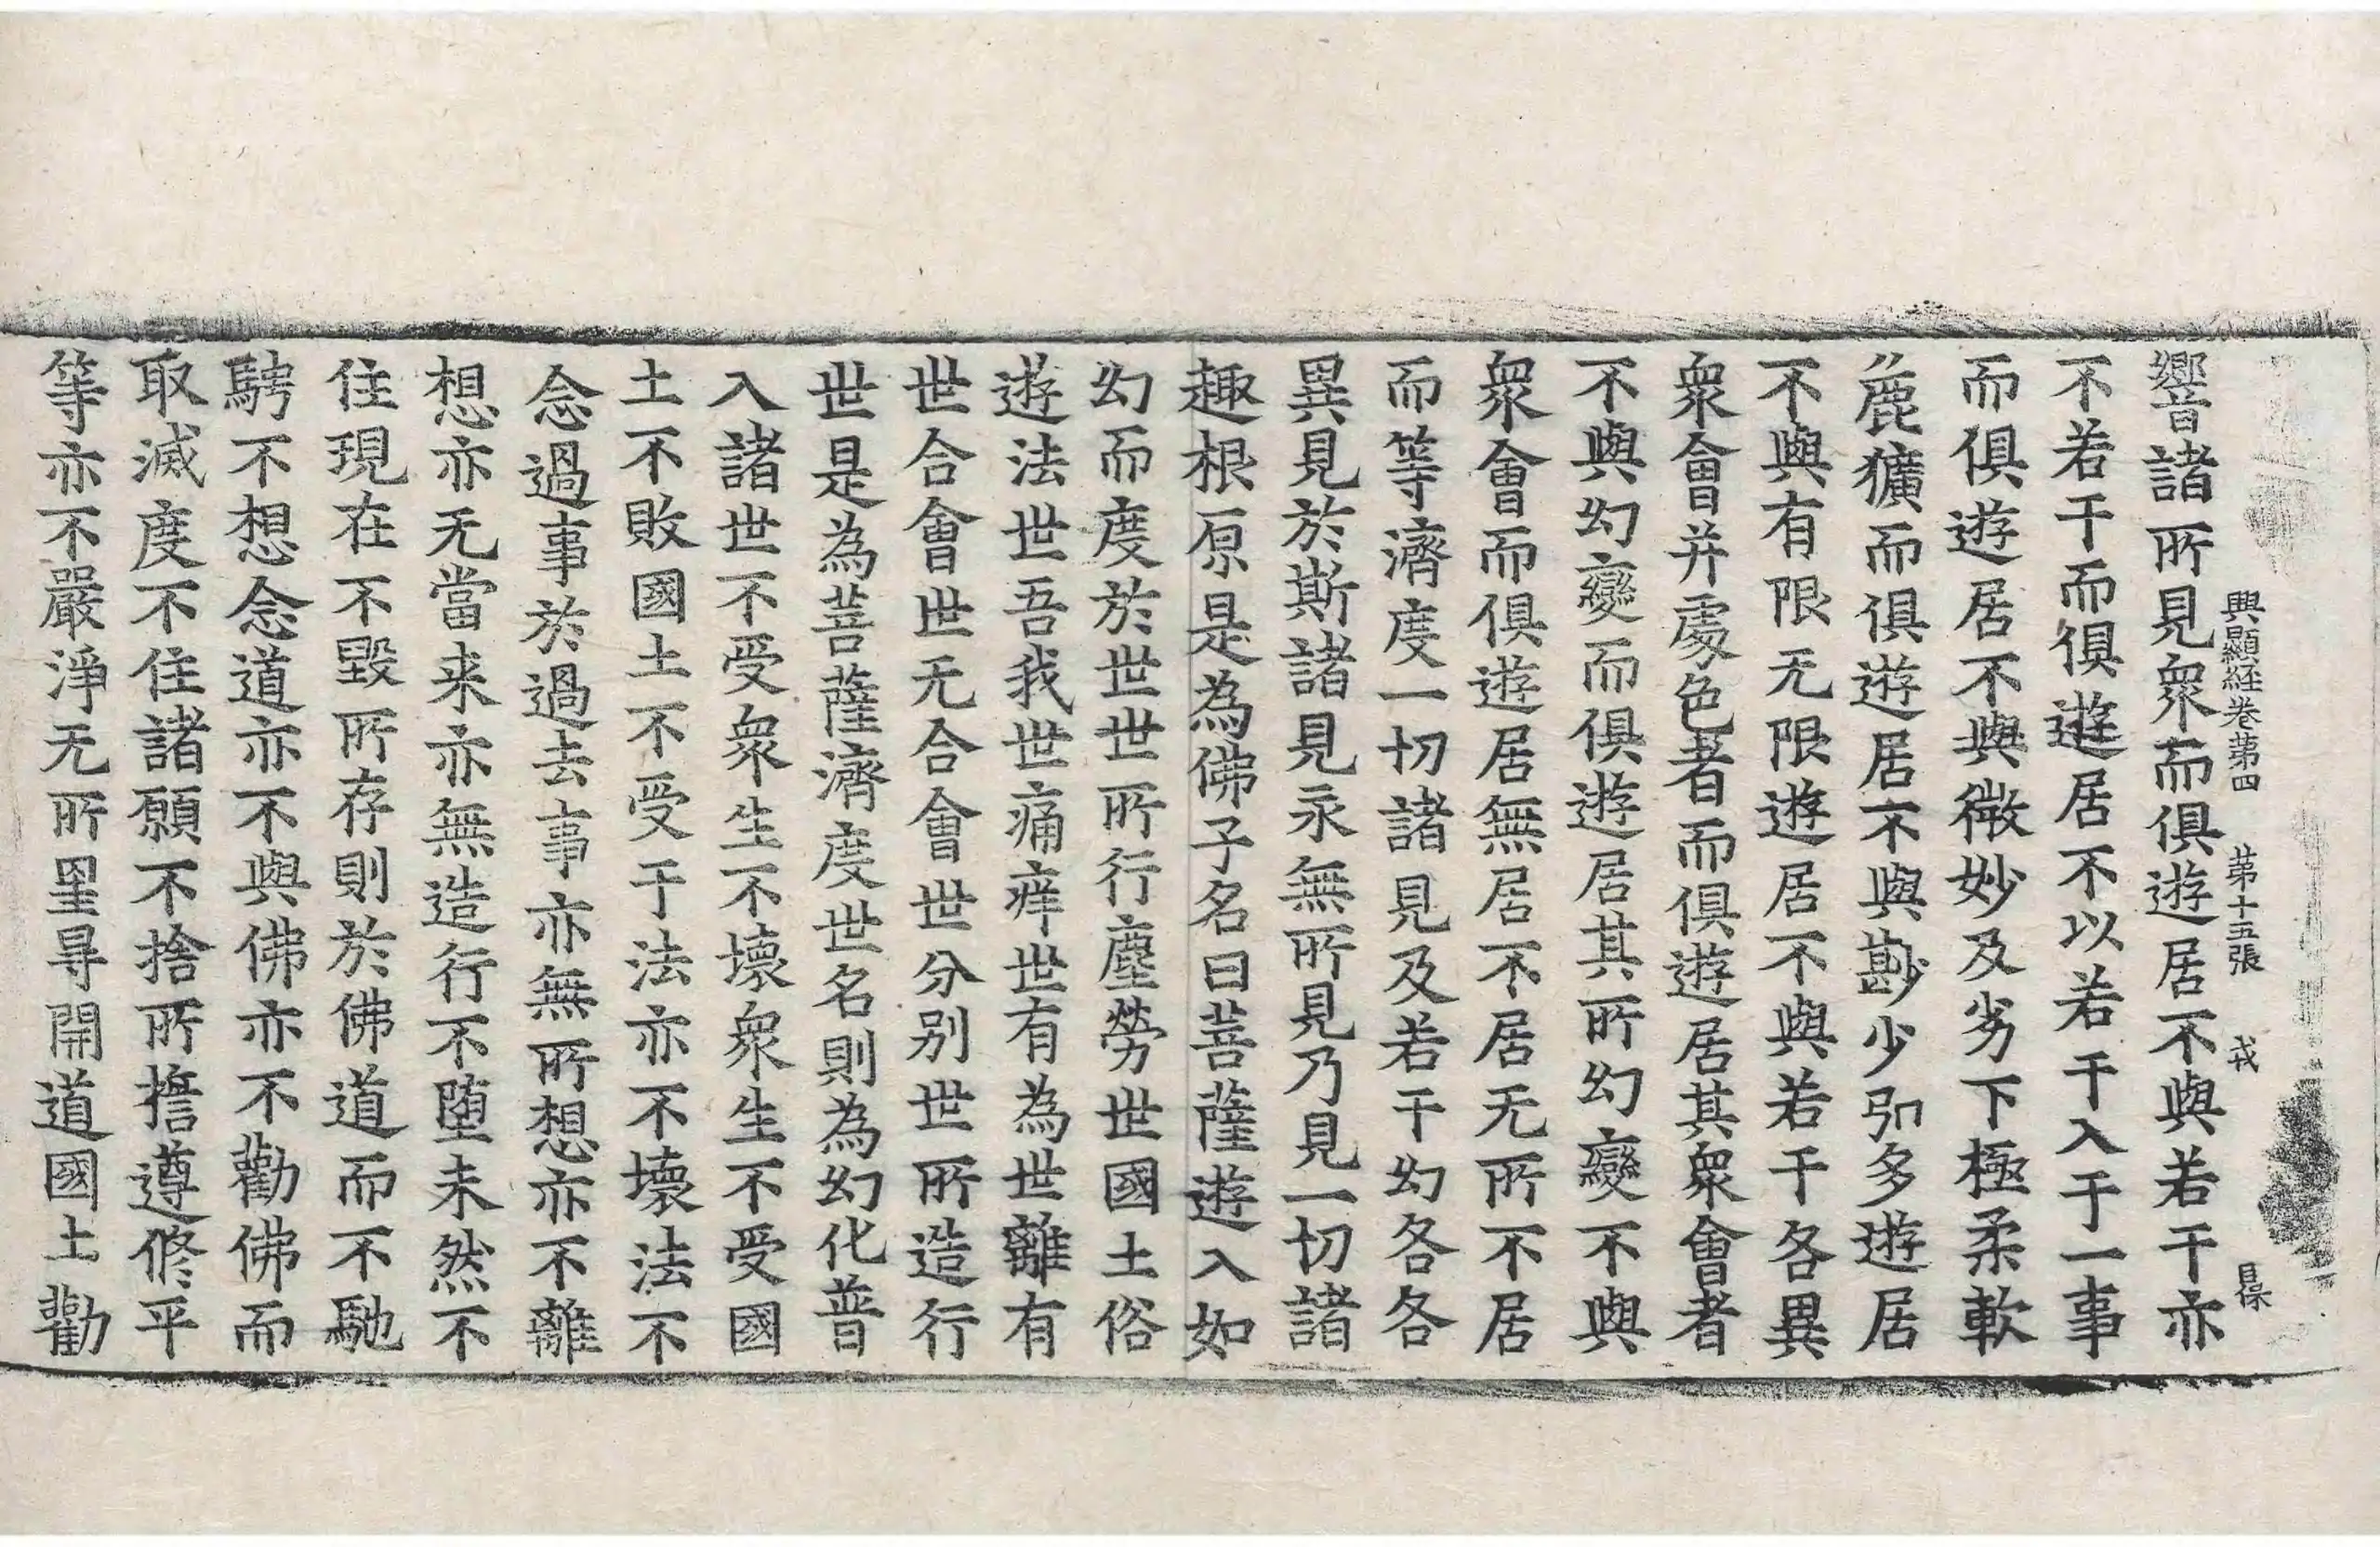 興顯経卷第四 第十五張 戎
響音諸所見衆而俱遊居不與若干亦
不若干而俱遊居不以若干入于一事
而俱遊居不與微妙及劣下極柔軟
麁獷而俱遊居不與尠少引多遊居
不與有限无限遊居不與若干各異
衆會并處色者而俱遊居其衆會者
不與幻變而俱遊居其所幻變不與
衆會而俱遊居無居不居无所不居
而等濟度一切諸見及若干幻各各
異見於斯諸見永無所見乃見一切諸
趣根原是為佛子名曰菩薩遊入如
幻而度於世世所行塵勞世國土俗
遊法世吾我世痛痒世有為世離有
世合會世无合會世分別世所造行
世是為菩薩濟度世名則為幻化普
入諸世不受衆生不壞衆生不受國
土不敗國土不受于法亦不壞法不
念過事於過去事亦無所想亦不離
想亦无當来亦無造行不堕未然不
住現在不毀所存則於佛道而不馳
騁不想念道亦不與佛亦不勸佛而
取滅度不住諸願不捨所擔遵修平
等亦不嚴淨无所里尋開道國土勸